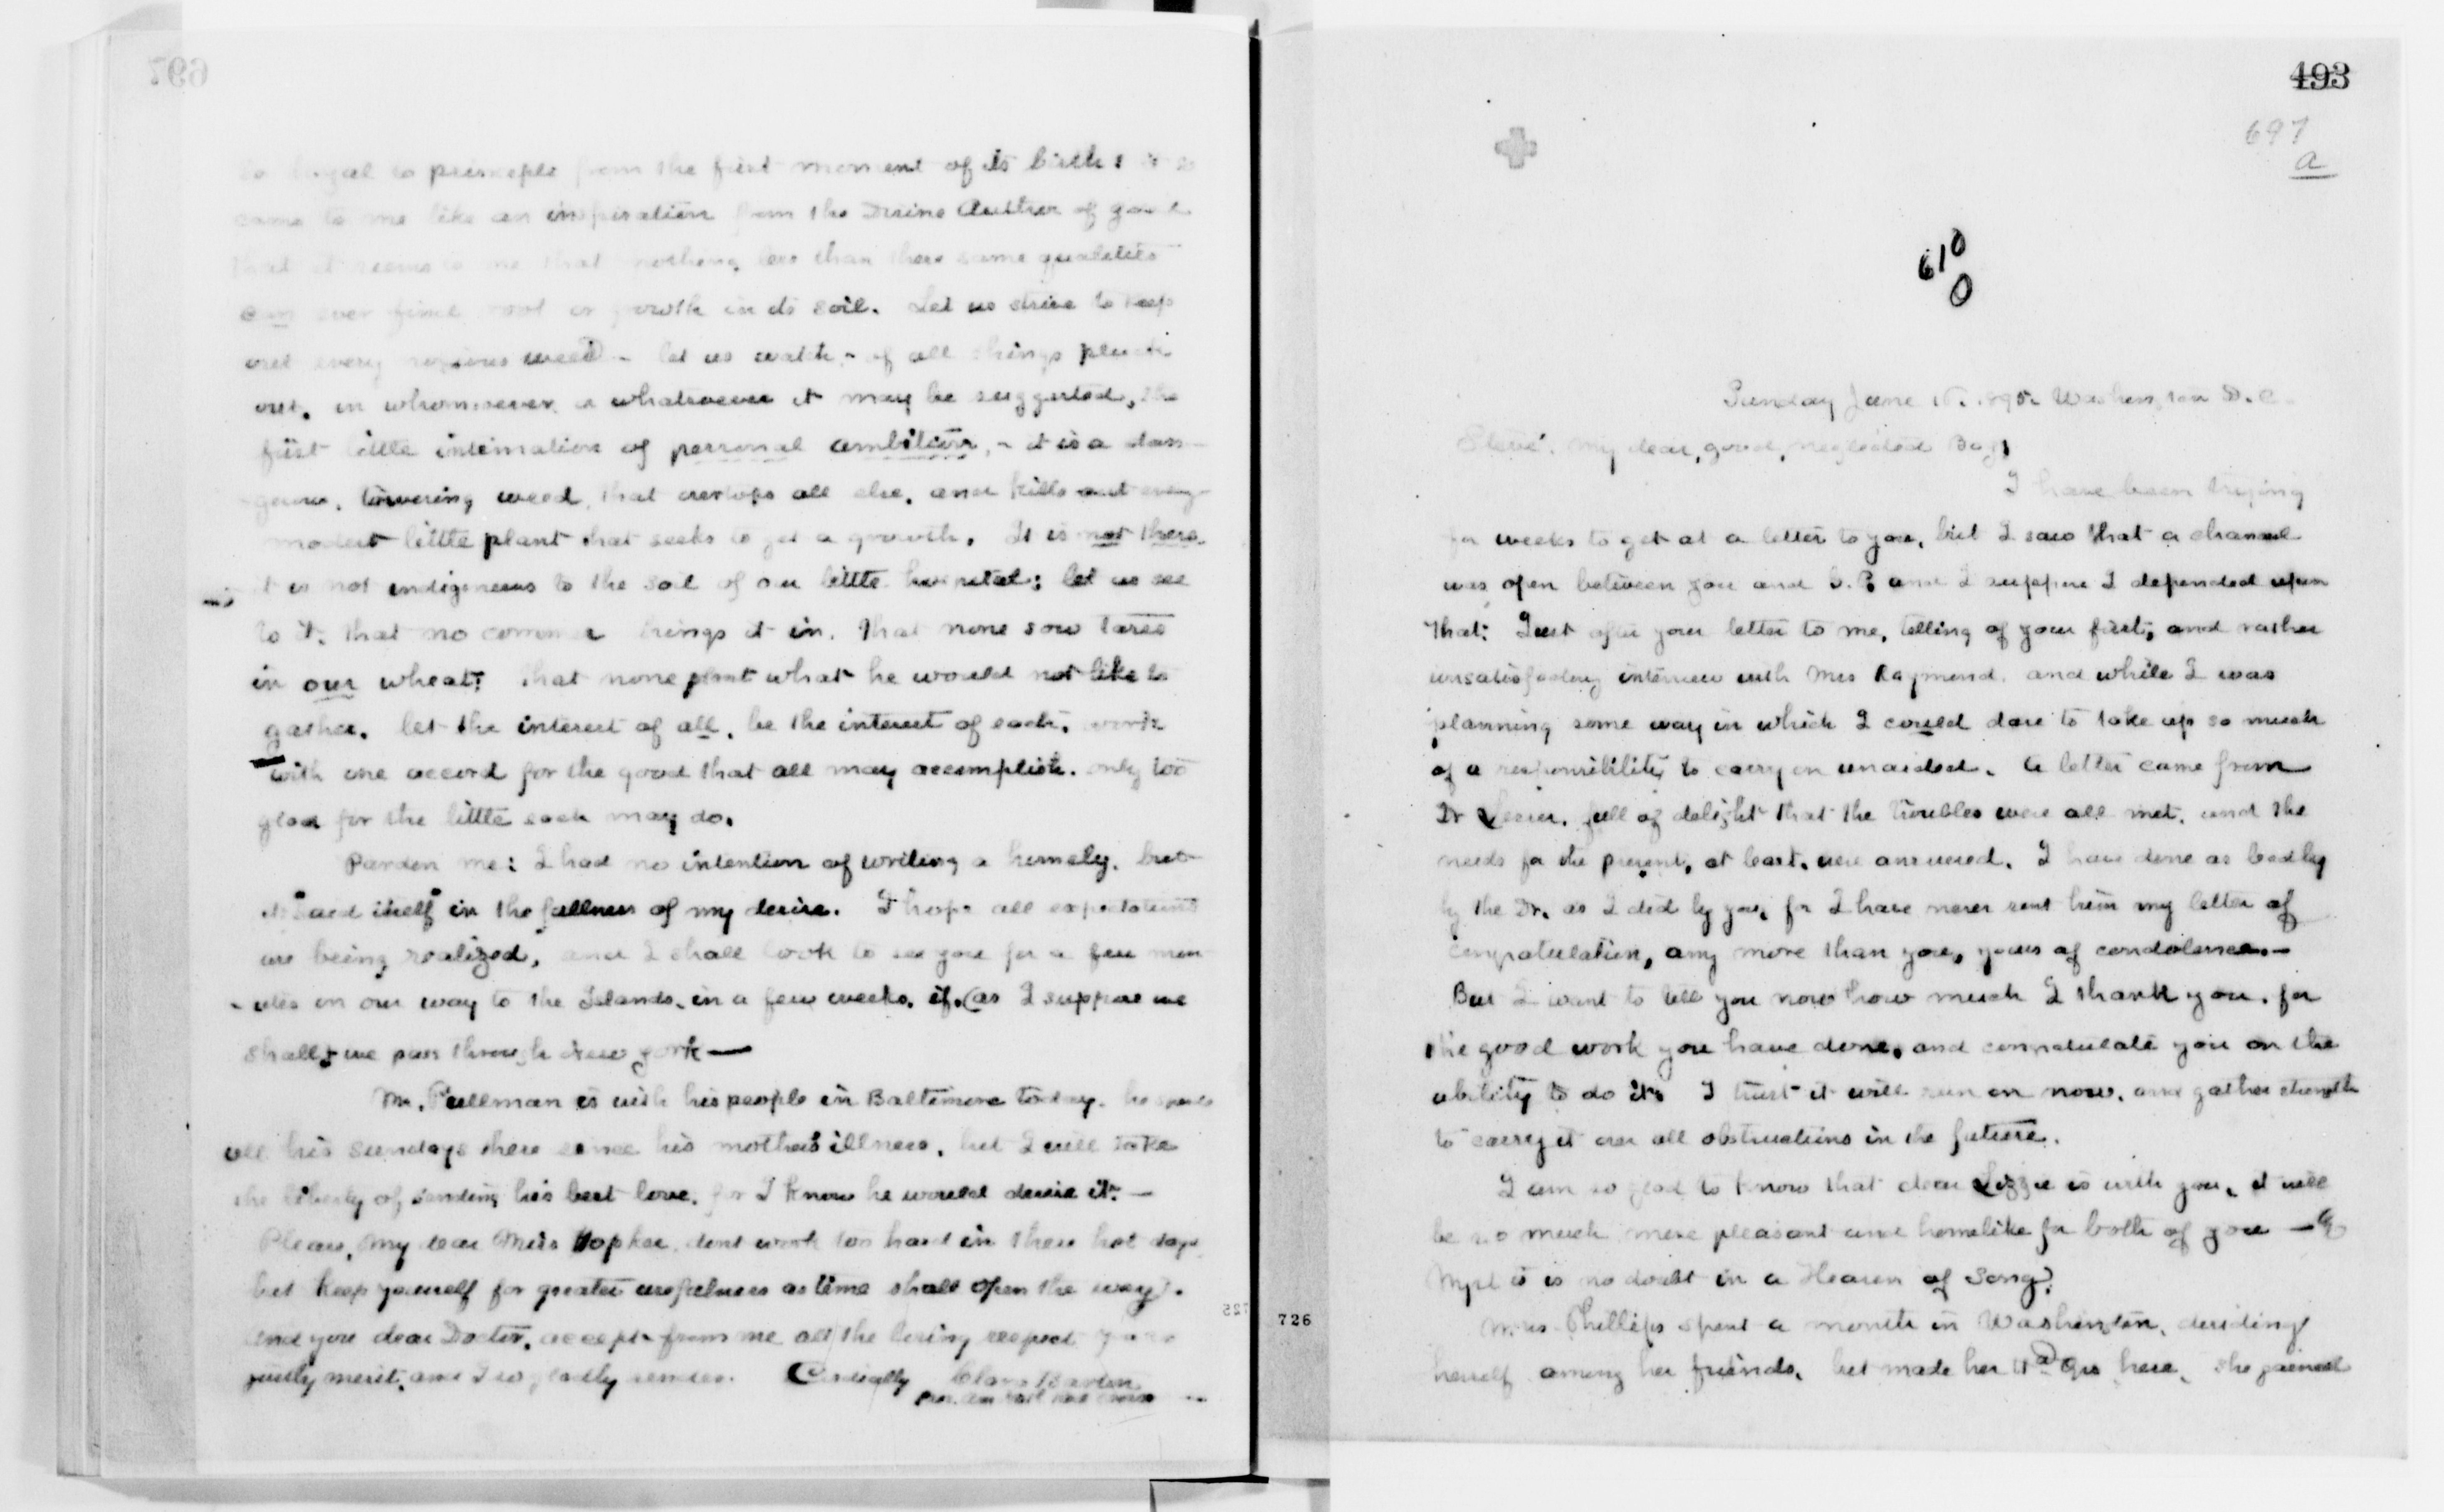 so loyal to principle from the first moment of its birth: it so
came to me like an inspiration from the Divine Author of good
that it seems to me that nothing less than these same qualities
can ever find root or growth in its soil. Let us strive to keep
out every noxious weed - let us watch - of all things pluck
out, in whomsoever or whatsoever it may be suggested, the
first little intimation of personal ambition, - it is a dan-
gerous, towering weed, that overtops all else, and kills out every
modest little plant that seeks to get a growth. It is not there.
it is not indigenous to the soil of our little hospital; let us see
to it, that no comer brings it in. That none sow tares
in our wheat; that none plant what he would not like to
gather. let the interest of all, be the interest of each, work
with one accord for the good that all may accomplish. only too
glad for the little each may do.
Pardon me: I had no intention of writing a homely, but
it said itself in the fullness of my desire. I hope all expectations
are being realized, and I shall look to see you for a few min-
-utes on our way to the Islands, in a few weeks, if, (as I suppose we
shall, we pass through New York —
Mr. Pullman is with his people in Baltimore today. he spends
all his Sundays there since his mothers illness, but I will take
the liberty of sending his best love, for I know he would desire it. —
Please, my dear Miss Hopkee, dont work too hard in these hot days
but keep yourself for greater usefulness as time shall open the way.
and you dear Doctor, accept from me all the loving respect you so
justly merit, and I so gladly render. Cordially Clara Barton
Pres. Am Natl Red Cross
725
726
493
697
a
610
0
Sunday June 16. 1895. Washington D.C.
Steve. My dear, good, neglected Boy,
I have been trying
for weeks to get at a letter to you, but I saw that a channel
was open between you and G.P. and I suppose I depended upon
that. Just after your letter to me, telling of your first, and rather
unsatisfactory interview with Mrs Raymond, and while I was
planning some way in which I could dare to take up so much
of a responsibility to carry on unaided. A letter came from
Dr Lesser, full of delight that the troubles were all met, and the
needs for the present, at least, were answered. I have done as badly
by the Dr. as I did by you, for I have never sent him my letter of
congratulation, any more than you, yours of condolence. —
But I want to tell you now how much I thank you, for
the good work you have done, and congratulate you on the
ability to do it. I trust it will run on now, and gather strength
to carry it over all obstructions in the future.
I am so glad to know that dear Lizzie is with you, it will
be so much more pleasant and homelike for both of you —
is no doubt in a Heaven of Song.
Mrs Phillips spent a month in Washington, dividing
herself among her friends, but made her Hd Qrs here, she gained